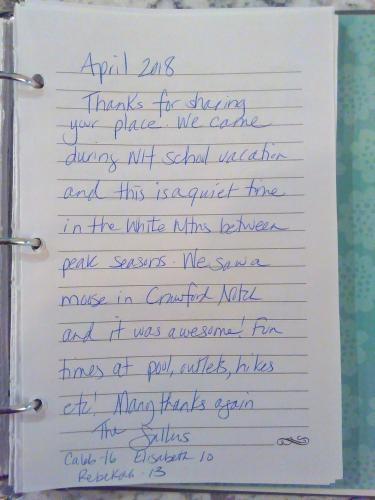 April 2018
Thanks for sharing
your place. We came
during NH school vacation
and this is a quiet time
in the White Mtns between
peak seasons. We saw a
moose in Crawford Notch
and it was awesome! Fun
times at pool, outlets, hikes
etc! Many thanks again
The
Caleb-16 Elisabeth 10
Rebekah-13